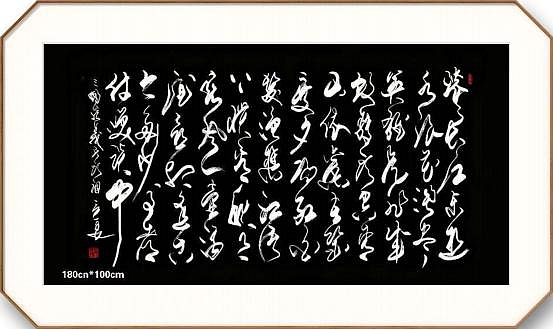 滚滚长江东逝
水浪花淘尽
英雄是非成
败转头空青
山依旧在几
度夕阳红白
发渔樵江渚
上惯看秋月
春风一壶浊
酒喜相逢古
今多少事都
付笑谈中
180cn*100cm